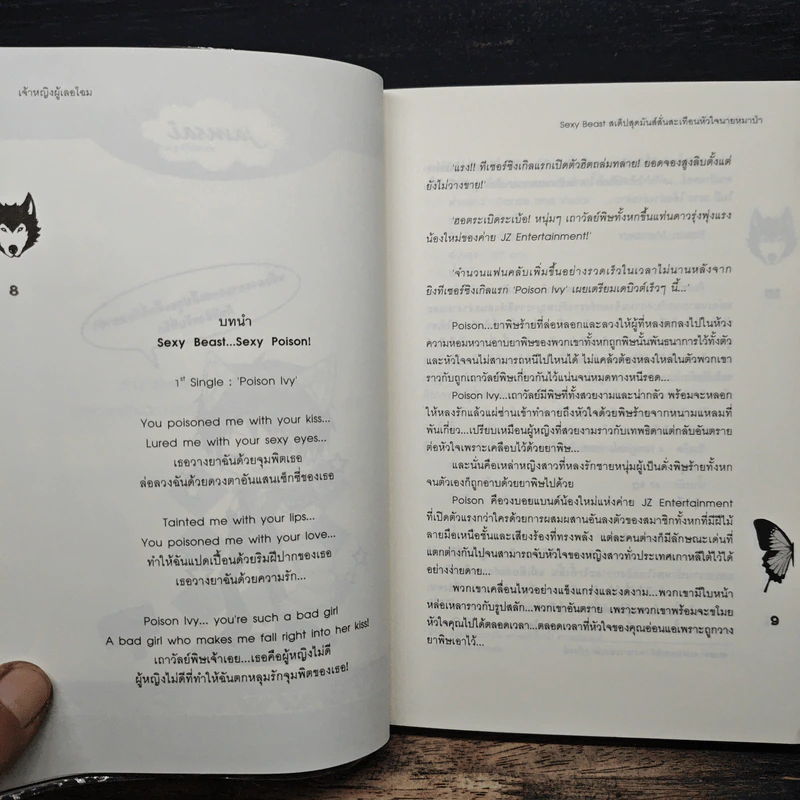 เจ้าหญิงผู้เลอโฉม
8
บทนำ
Sexy Beast...Sexy Poison!
1st Single : 'Poison Ivy'
You poisoned me with your kiss...
Lured me with your sexy eyes...
เธอวางยาฉันด้วยจุมพิตเธอ
ล่อลวงฉันด้วยดวงตาอันแสนเซ็กซี่ของเธอ
Tainted me with your lips...
You poisoned me with your love...
ทำให้ฉันแปดเปื้อนด้วยริมฝีปากของเธอ
เธอวางยาฉันด้วยความรัก...
Poison Ivy... you're such a bad girl
A bad girl who makes me fall right into her kiss!
เถาวัลย์พิษเจ้าเอย...เธอคือผู้หญิงไม่ดี
ผู้หญิงไม่ดีที่ทำให้ฉันตกหลุมรักจุมพิตของเธอ!
Sexy Beast สเต็ปสุดมันส์สั่นสะเทือนหัวใจนายหมาป่า
'แรง!! ทีเซอร์ซิงเกิลแรกเปิดตัวฮิตถล่มทลาย! ยอดจองสูงลิบตั้งแต่
ยังไม่วางขาย!'
'ฮอตระเบิดระเบ้อ! หนุ่มๆ เถาวัลย์พิษทั้งหกขึ้นแท่นดาวรุ่งพุ่งแรง
น้องใหม่ของค่าย JZ Entertainment!'
'จำนวนแฟนคลับเพิ่มขึ้นอย่างรวดเร็วในเวลาไม่นานหลังจาก
ยิงทีเซอร์ซิงเกิลแรก 'Poison Ivy' เผยเตรียมเดบิวต์เร็วๆ นี้...'
Poison...ยาพิษร้ายที่ล่อหลอกและลวงให้ผู้ที่หลงตกลงไปในห้วง
ความหอมหวานอาบยาพิษของพวกเขาทั้งหกถูกพิษนั้นพันธนาการไว้ทั้งตัว
และหัวใจจนไม่สามารถหนีไปไหนได้ ไม่แคล้วต้องหลงใหลในตัวพวกเขา
ราวกับถูกเถาวัลย์พิษเกี่ยวกันไว้แน่นจนหมดทางหนีรอด...
Poison Ivy...เถาวัลย์มีพิษที่ทั้งสวยงามและน่ากลัว พร้อมจะหลอก
ให้หลงรักแล้วแผ่ซ่านเข้าทำลายถึงหัวใจด้วยพิษร้ายจากหนามแหลมที่
พันเกี่ยว...เปรียบเหมือนผู้หญิงที่สวยงามราวกับเทพธิดาแต่กลับอันตราย
ต่อหัวใจเพราะเคลือบไว้ด้วยยาพิษ...
และนั่นคือเหล่าหญิงสาวที่หลงรักชายหนุ่มผู้เป็นดั่งพิษร้ายทั้งหก
จนตัวเองก็ถูกอาบด้วยยาพิษไปด้วย
Poison คือวงบอยแบนด์น้องใหม่แห่งค่าย JZ Entertainment
ที่เปิดตัวแรงกว่าใครด้วยการผสมผสานอันลงตัวของสมาชิกทั้งหกที่มีฝีไม้
ลายมือเหนือชั้นและเสียงร้องที่ทรงพลัง แต่ละคนต่างก็มีลักษณะเด่นที่
แตกต่างกันไปจนสามารถจับหัวใจของหญิงสาวทั่วประเทศเกาหลีใต้ไว้ได้
อย่างง่ายดาย...
พวกเขาเคลื่อนไหวอย่างแข็งแกร่งและงดงาม...พวกเขามีใบหน้า
หล่อเหลาราวกับรูปสลัก...พวกเขาอันตราย เพราะพวกเขาพร้อมจะขโมย
หัวใจคุณไปได้ตลอดเวลา...ตลอดเวลาที่หัวใจของคุณอ่อนแอเพราะถูกวาง
ยาพิษเอาไว้...
9